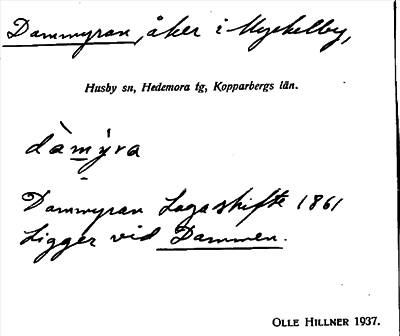 Dammyran, åker i Myckelby,
Husby sn, Hedemora tg, Kopparbergs län.
dàmýra
Dammyran Laga skifte 1861
Ligger vid Dammen.
OLLE HILLNER 1937.